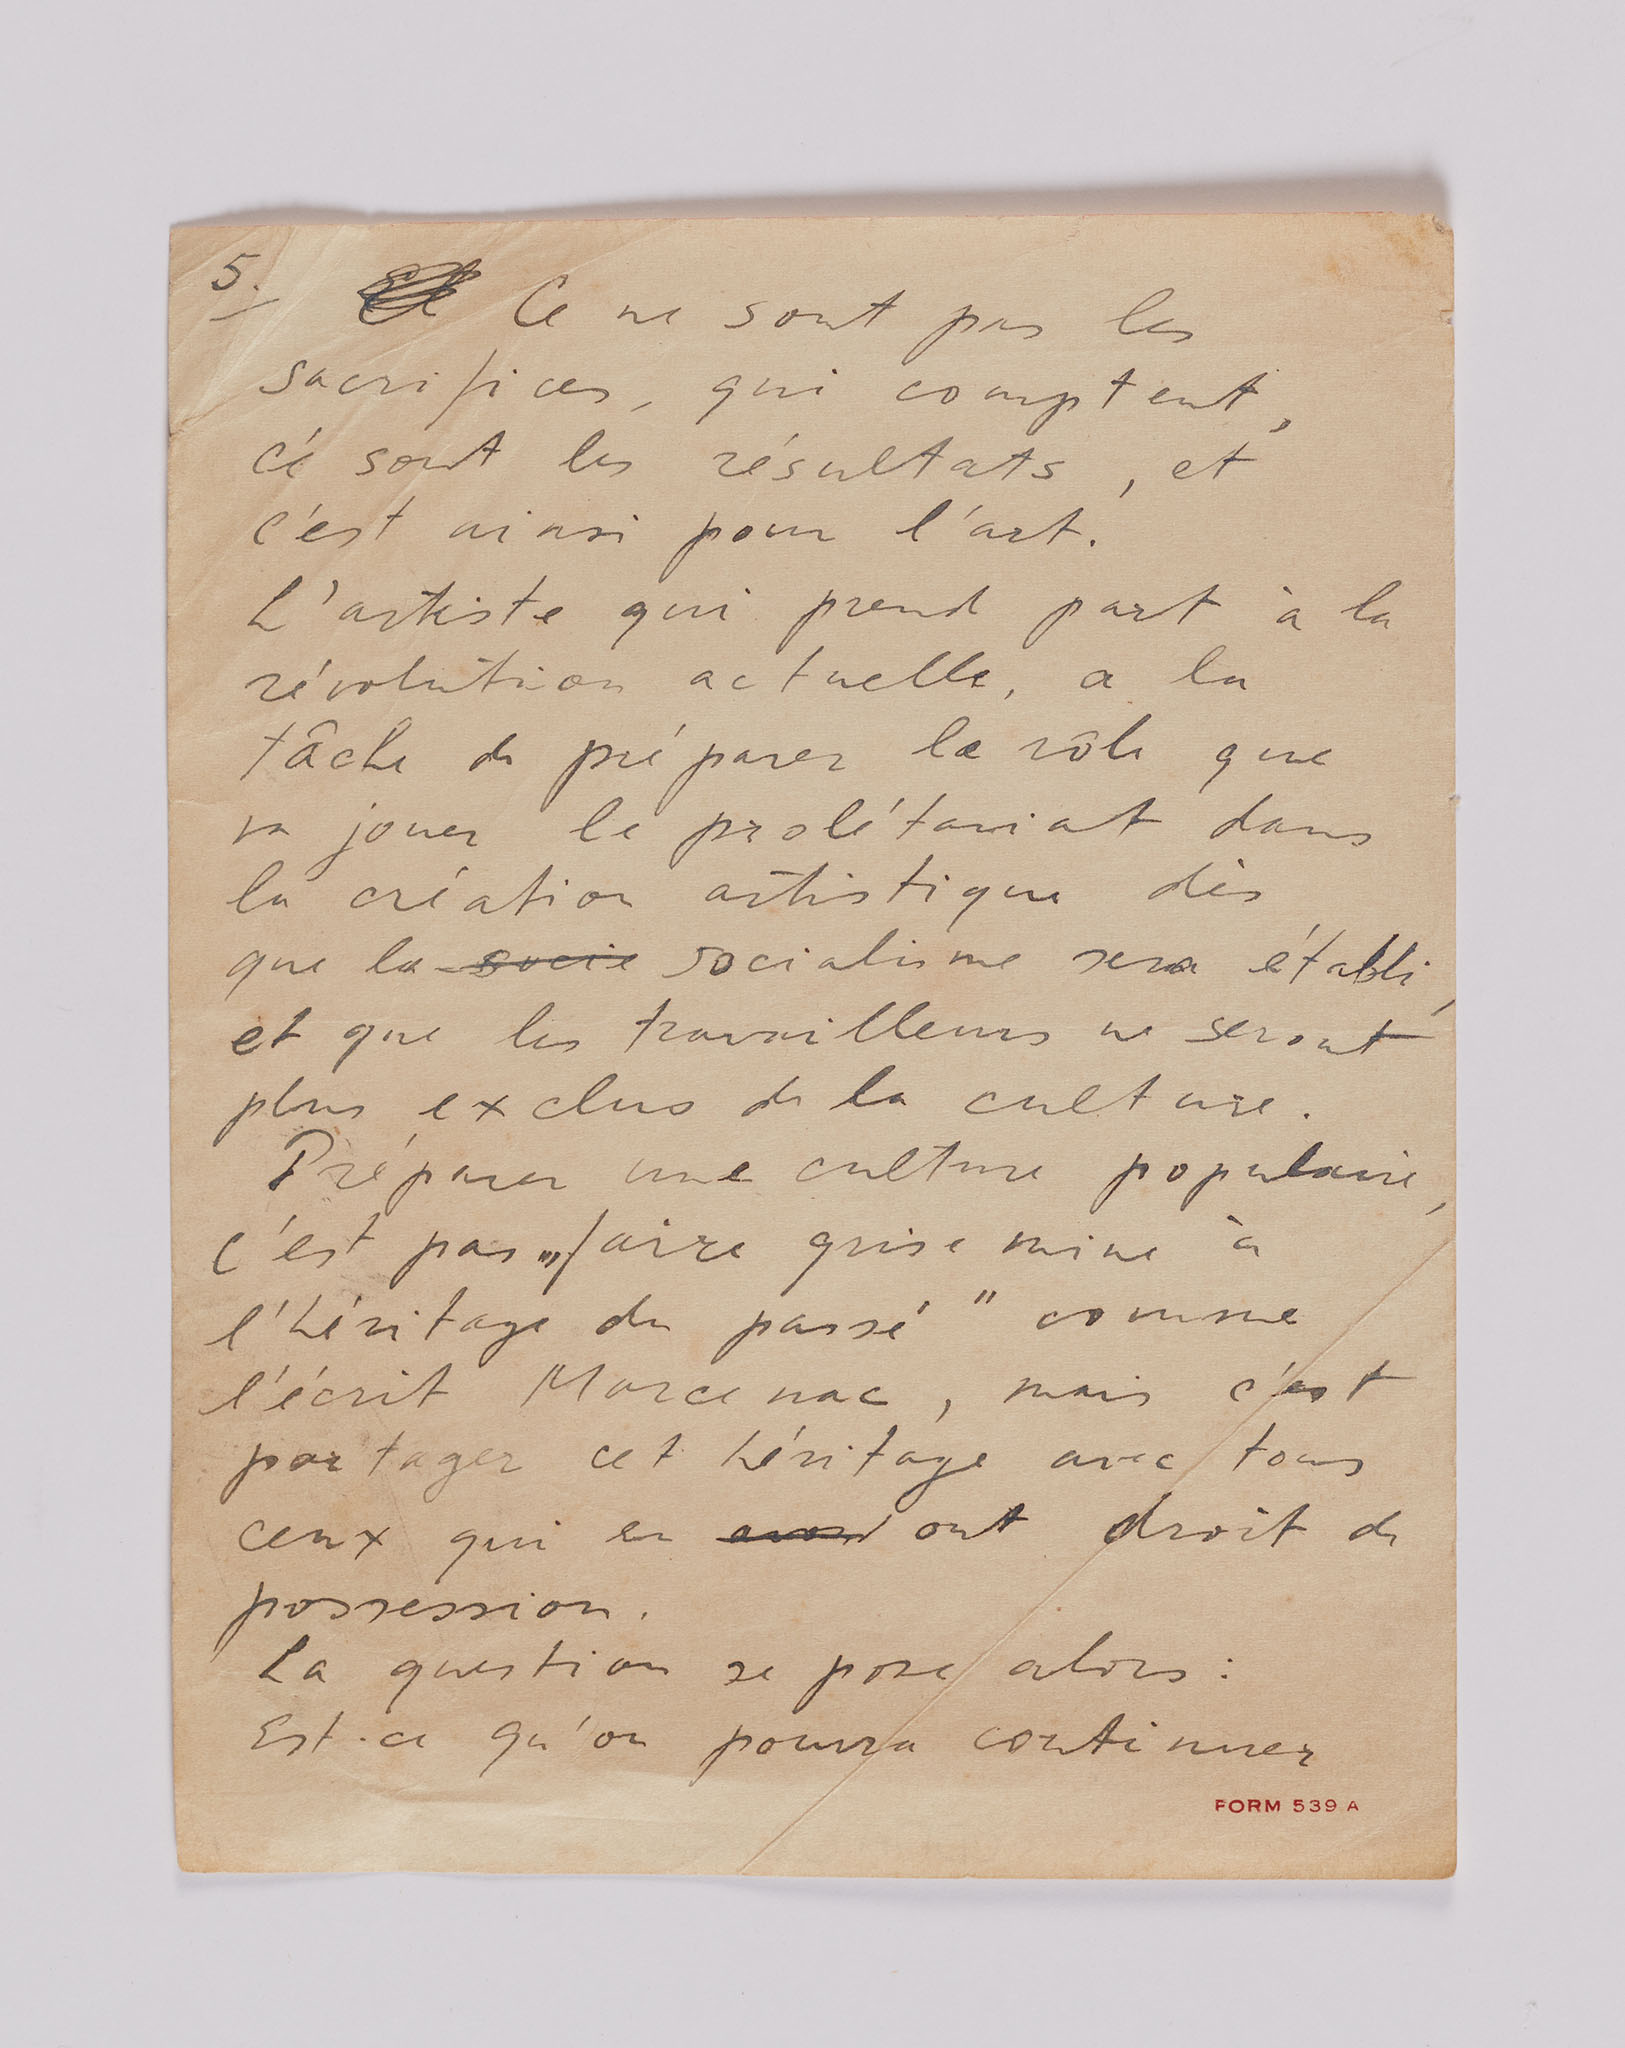 5.
Ce ne sont pas les
sacrifices, qui comptent,
ce sont les résultats, et
c'est ainsi pour l'art.
L'artiste qui prend part à la
révolution actuelle, a la
tâche de préparer le rôle que
va jouer le prolétariat dans
la création artistique dès
que la socie socialisme sera établi,
et que les travailleurs ne seront
plus exclus de la culture.
Préparer une culture populaire,
c'est pas „faire grise mine à
l'héritage du passé" comme
l'écrit Marcenac, mais c'est
partager cet héritage avec tous
ceux qui en ont droit de
possession.
La question se pose alors:
Est-ce qu'on pourra continuer
FORM 539 A